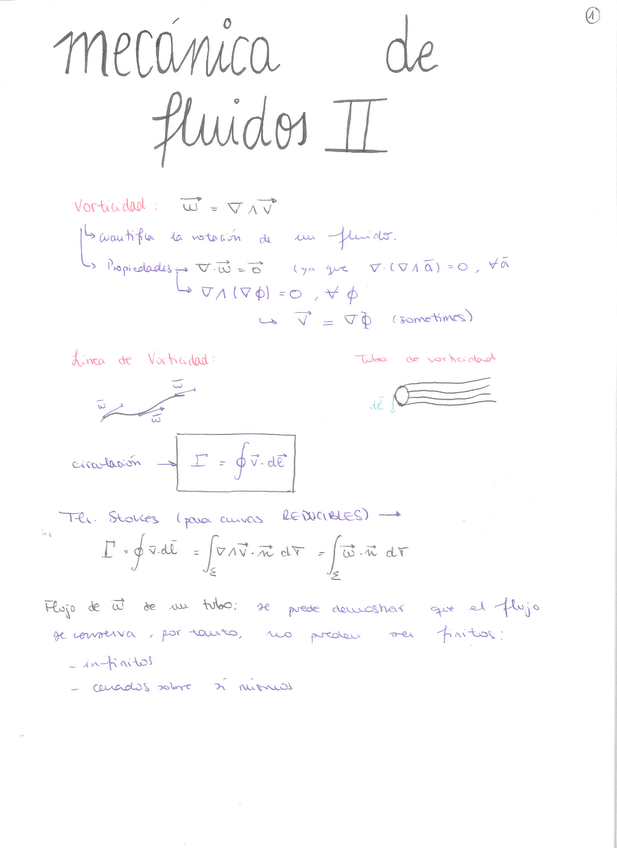 1
mecánica de
fluidos II
Vorticidad: \vec{w} = ∇ ∧ \vec{v}
↳ cuantifica la rotación de un fluido.
↳ Propiedades → ∇·\vec{w} = \vec{0} (ya que ∇·(∇∧\vec{a}) = 0, ∀\vec{a}
↳ ∇∧(∇ϕ) = 0, ∀ ϕ
↳ \vec{v} = ∇ϕ (sometimes)
Línea de Vorticidad: Tubo de vorticidad
\vec{w} \vec{w} \vec{w} d\vec{l}
circulación → Γ = ∮ \vec{v}·d\vec{l}
Th. Stokes (para curvas REDUCIBLES) →
Γ = ∮ \vec{v}·d\vec{l} = ∫_Σ ∇∧\vec{v}·\vec{n} dσ = ∫_Σ \vec{w}·\vec{n} dσ
Flujo de \vec{w} de un tubo: se puede demostrar que el flujo
se conserva, por tanto, no pueden ser finitos:
- infinitos
- cerrados sobre sí mismos